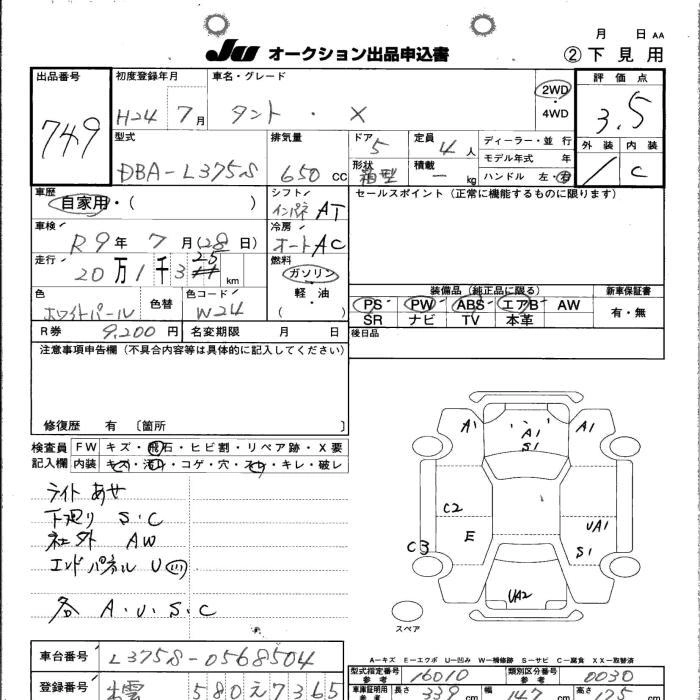 月 日 AA
JU オークション出品申込書 ② 下見用
出品番号 749
初度登録年月 H24 7月
車名・グレード タント ・ X
2WD ・ 4WD
評価点 3.5
外装 / 内装 C
型式 DBA-L375S
排気量 650 CC
ドア 5
定員 4人
形状 箱型
積載 - kg
ディーラー・並行
モデル年式 年
ハンドル 左・右
車歴 自家用・( )
シフト インパネ AT
セールスポイント (正常に機能するものに限ります)
車検 R9年 7月(28日)
冷房 オートAC
走行 20万1千3 25 km
燃料 ガソリン 軽油 ( )
色 ホワイトパール 色替
色コード W24
装備品 (純正品に限る) 新車保証書
PS PW ABS エアB AW 有・無
SR ナビ TV 本革
R券 9,200円 名変期限 月 日
後日品
注意事項申告欄 (不具合内容等は具体的に記入してください)
修復歴 有 〔箇所 〕
検査員記入欄
FW キズ・飛石・ヒビ割・リペア跡・X要
内装 キズ・汚れ・コゲ・穴・スレ・キレ・破レ
ライトあせ
下廻り S・C
社外 AW
エンドパネル U
各 A・U・S・C
A1 A1 S1 A1
C2 UA1
C3 E S1
UA2
スペア
A-キズ E-エクボ U-凹み W-補修跡 S-サビ C-腐食 XX-取替済
車台番号 L375S-0568504
型式指定番号 参考 16010
類別区分番号 参考 0030
登録番号 出雲 580 え 7365
車庫証明用 参考 長さ 339 cm 幅 147 cm 高さ 175 cm